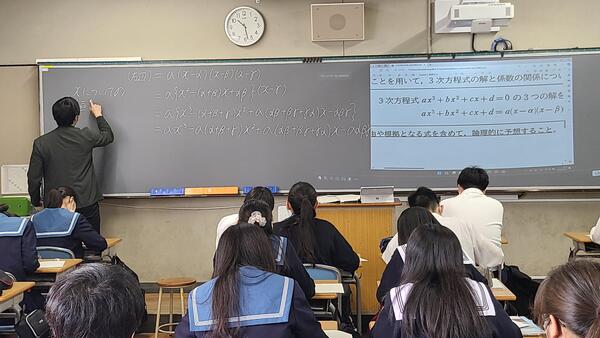 (右辺) = a(x-α)(x-β)(x-γ)
xについての
= a{x²-(α+β)x+αβ}(x-γ)
= a{x³-(α+β+γ)x²+(αβ+βγ+γα)x-αβγ}
= ax³-a(α+β+γ)x²+a(αβ+βγ+γα)x-aαβγ
ことを用いて，3次方程式の解と係数の関係につい
3次方程式 ax³+bx²+cx+d=0 の3つの解を
ax³+bx²+cx+d=a(x-α)(x-β)
や根拠となる式を含めて，論理的に予想すること。